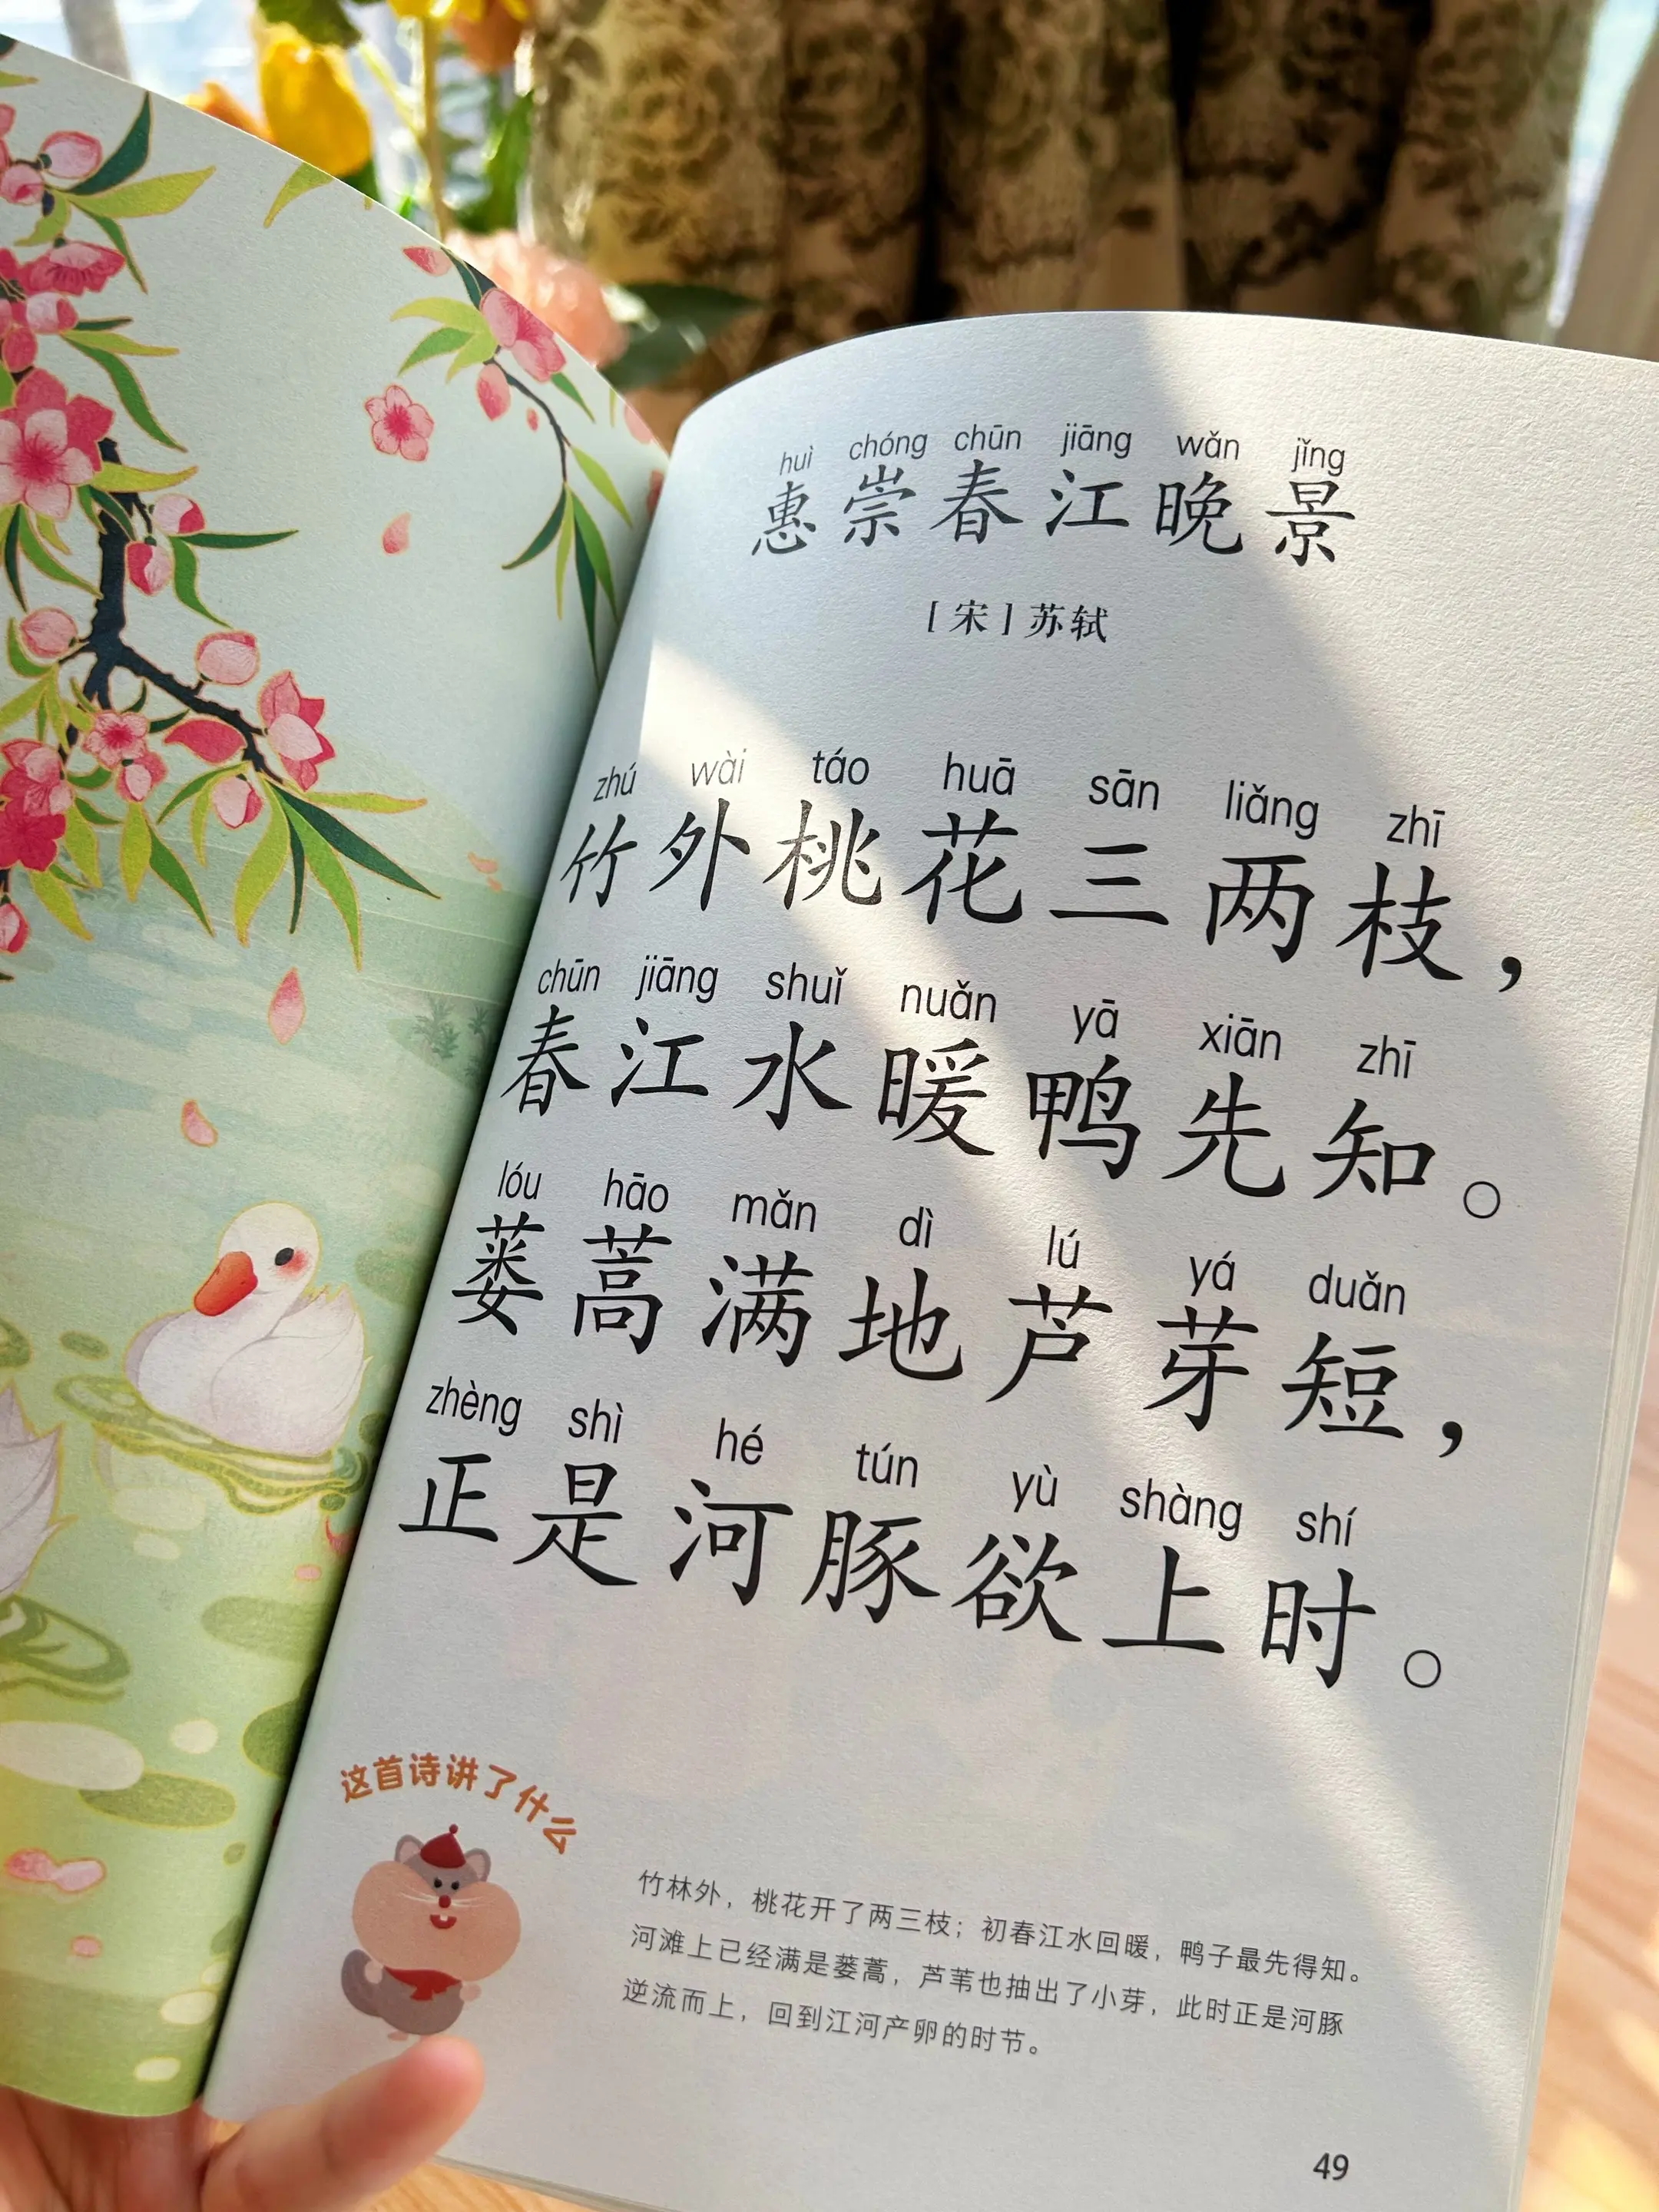 huì chóng chūn jiāng wǎn jǐng
惠崇春江晚景
[宋]苏轼
zhú wài táo huā sān liǎng zhī
竹外桃花三两枝，
chūn jiāng shuǐ nuǎn yā xiān zhī
春江水暖鸭先知。
lóu hāo mǎn dì lú yá duǎn
蒌蒿满地芦芽短，
zhèng shì hé tún yù shàng shí
正是河豚欲上时。
这首诗讲了什么
竹林外，桃花开了两三枝；初春江水回暖，鸭子最先得知。
河滩上已经满是蒌蒿，芦苇也抽出了小芽，此时正是河豚
逆流而上，回到江河产卵的时节。
49